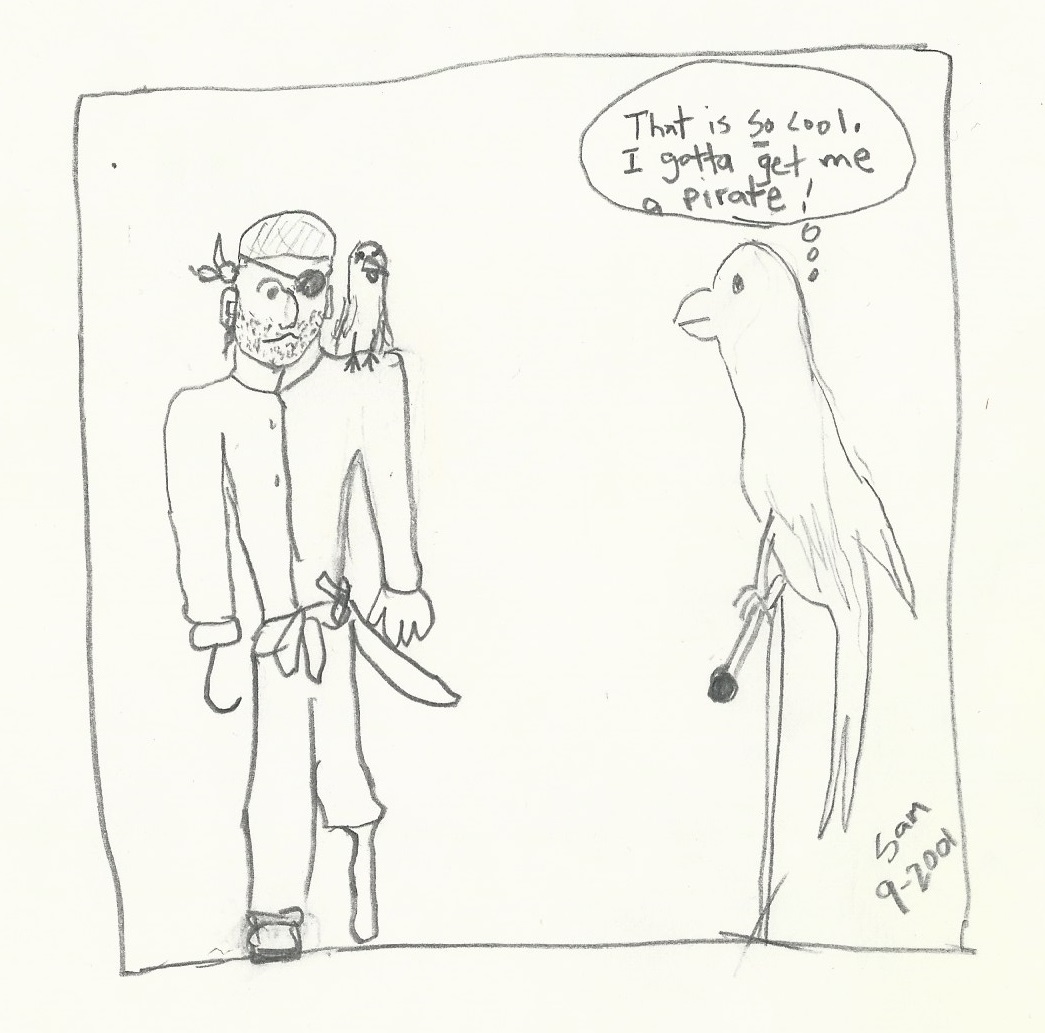 That is so cool.
I gotta get me
a pirate!
Sam
9-2001